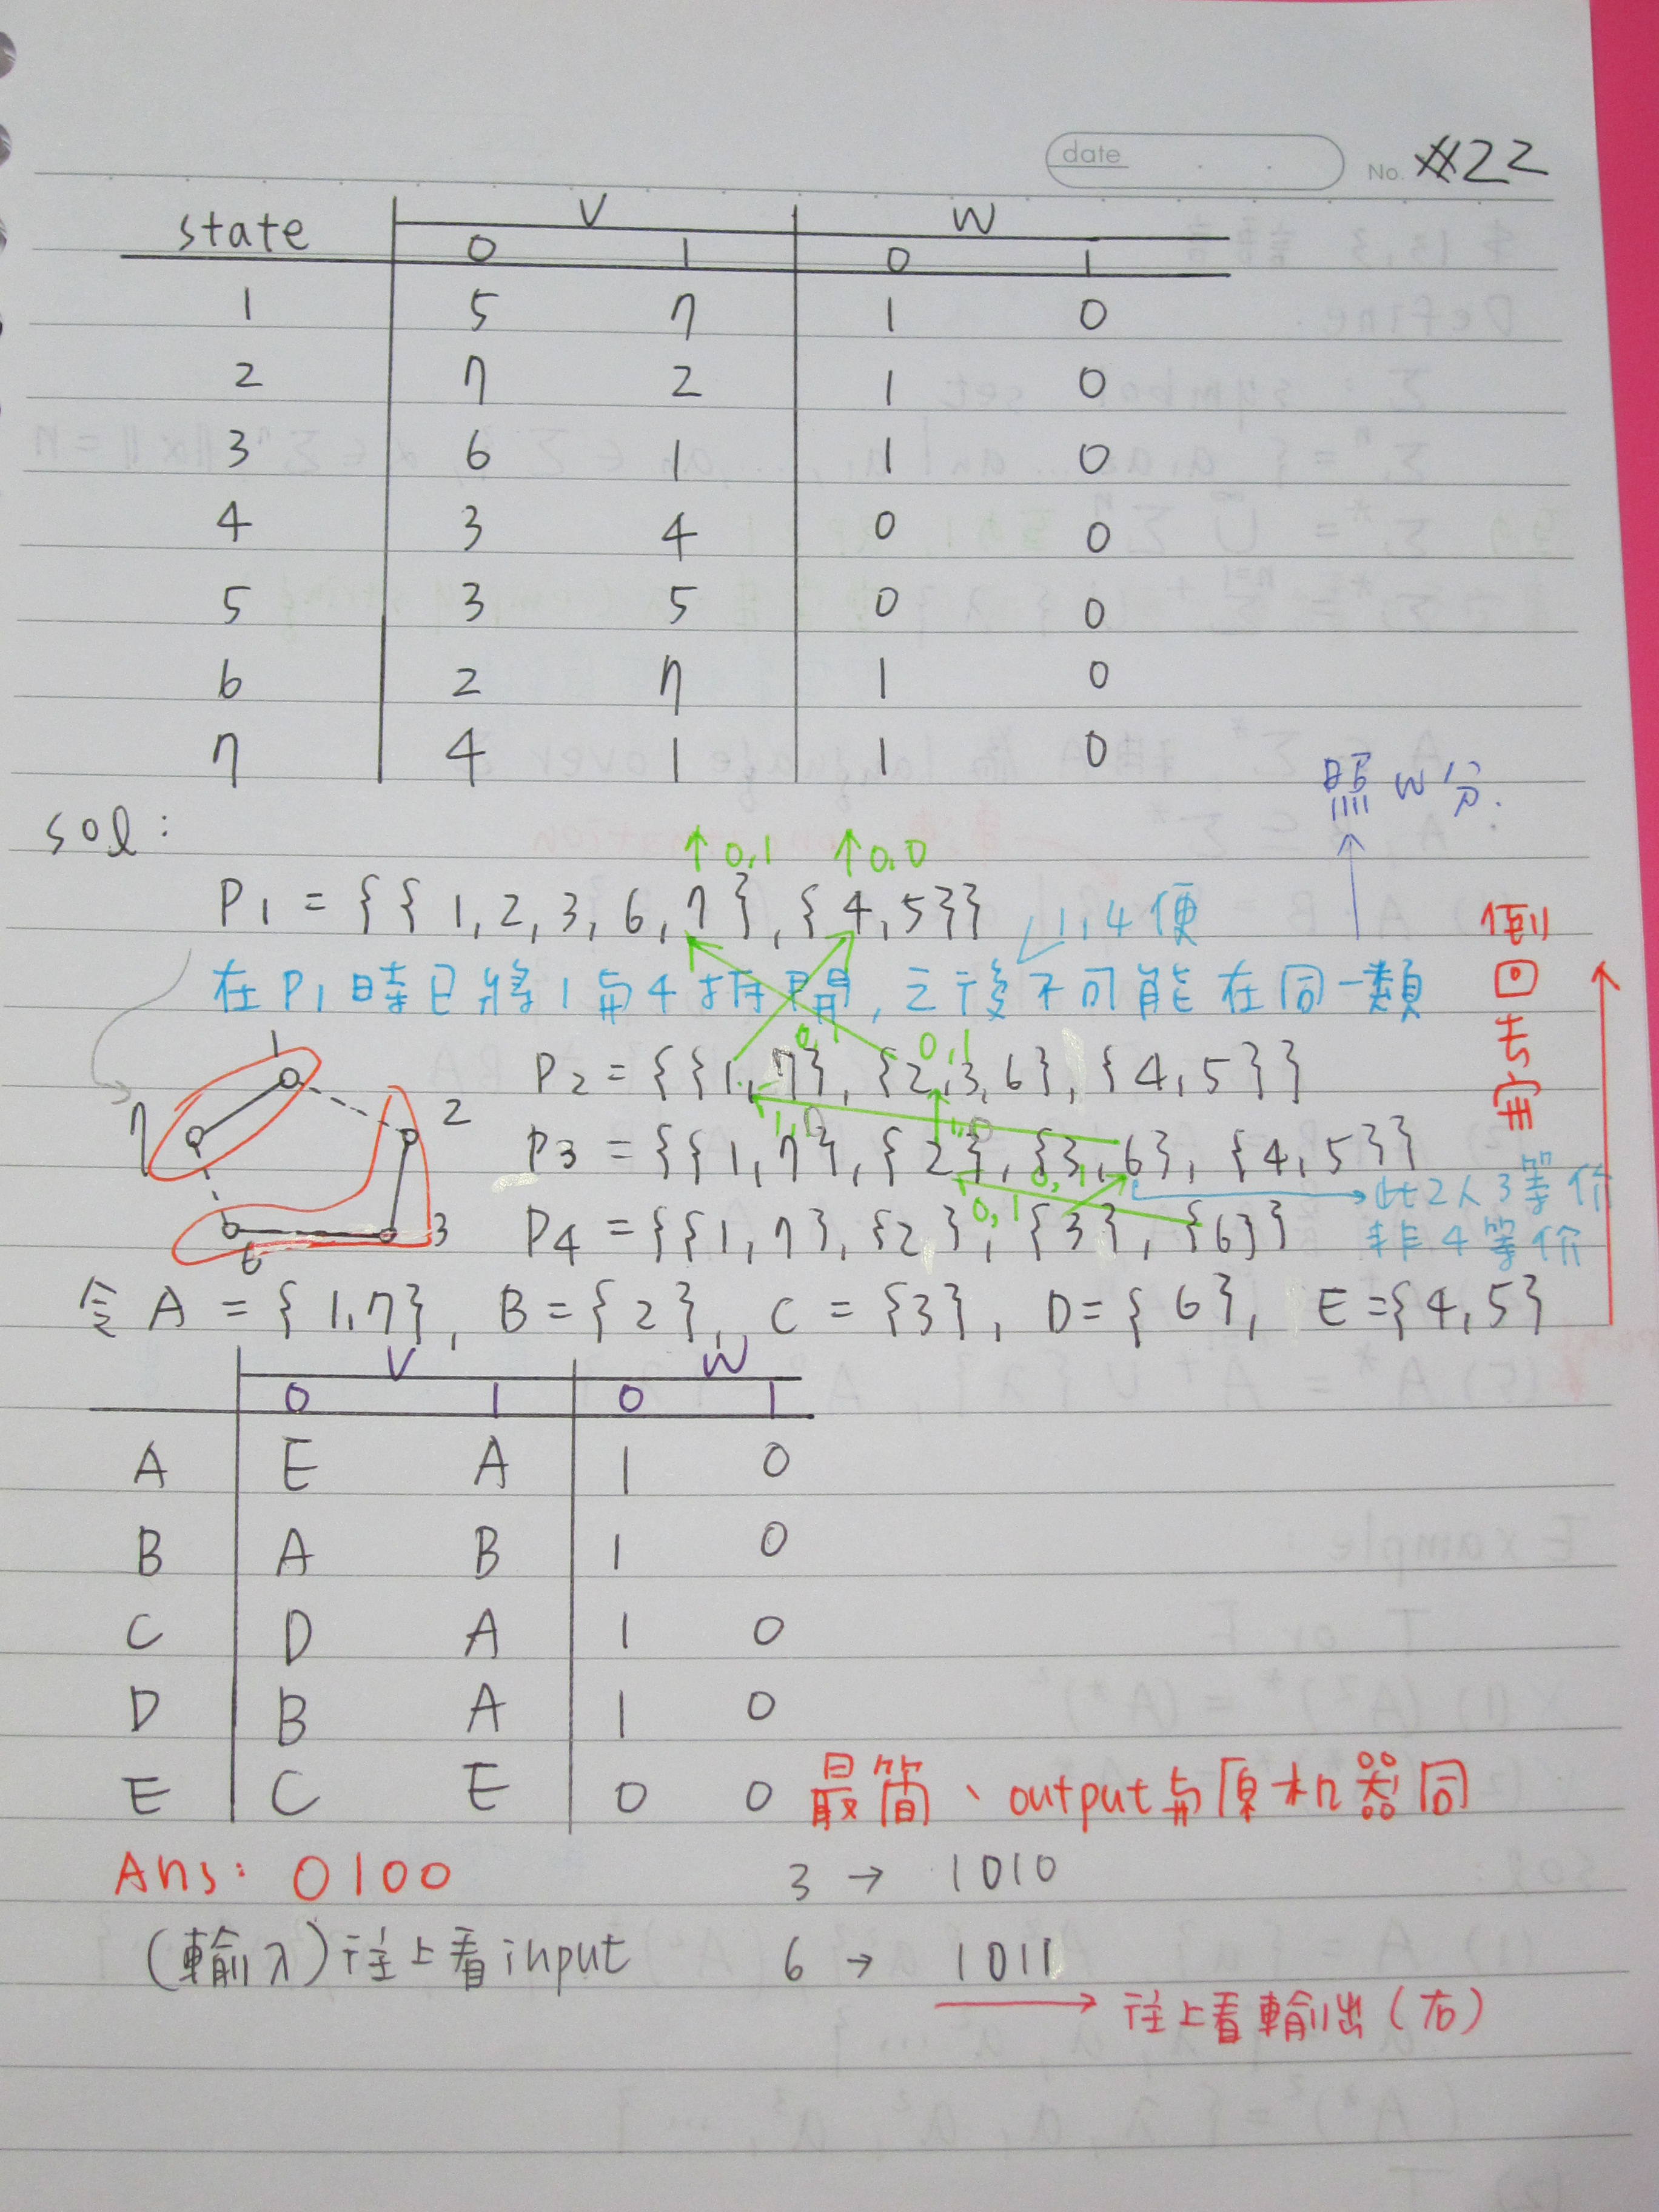 date No. #22
state V W
0 1 0 1
1 5 7 1 0
2 7 2 1 0
3 6 1 1 0
4 3 4 0 0
5 3 5 0 0
6 2 7 1 0
7 4 1 1 0
照W分.
sol:
↑0,1 ↑0,0
P1 = {{1,2,3,6,7},{4,5}}
1,4便
在P1時已將1與4拆開,之後不可能在同一類
倒回去寫
0,1 0,1
P2 = {{1,7},{2,3,6},{4,5}}
1 2 3 6 7
1,0 1,0
P3 = {{1,7},{2},{3,6},{4,5}}
此2人3等价
非4等价
0,1 0,1
P4 = {{1,7},{2},{3},{6}}
令A = {1,7}, B={2}, C={3}, D={6}, E={4,5}
V W
0 1 0 1
A E A 1 0
B A B 1 0
C D A 1 0
D B A 1 0
E C E 0 0
最簡、output與原机器同
Ans: 0100 3 → 1010
(輸入)往上看input 6 → 1011
→ 往上看輸出(右)